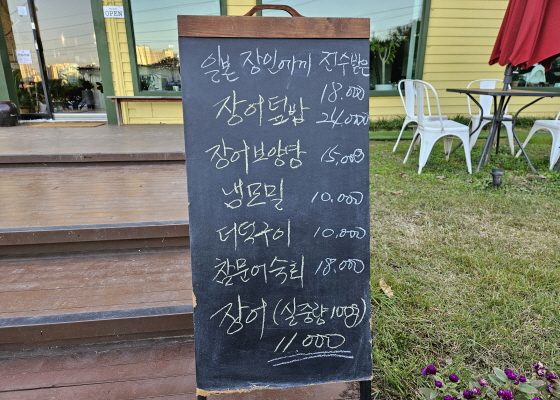 OPEN
일본 장인에게 전수받은
18.000
장어덮밥 24.000
장어보양탕 15.000
냉모밀 10.000
더덕구이 10.000
참문어숙회 18.000
장어 (실중량 100g)
11.000